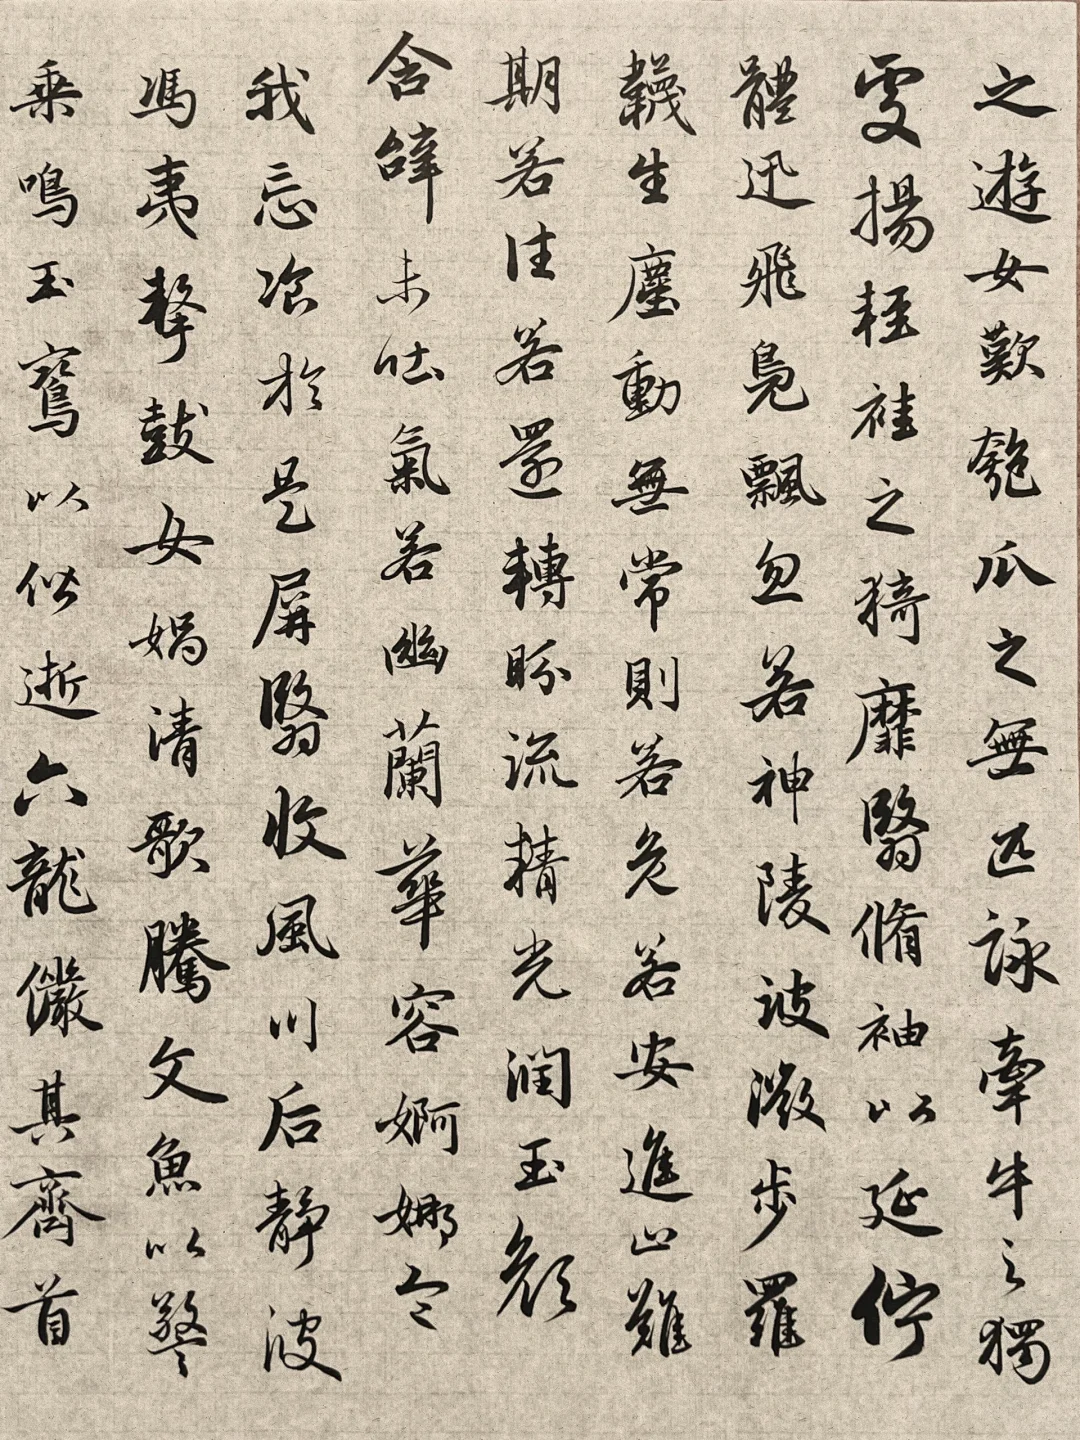 之遊女歎匏瓜之無匹詠牽牛之獨
處揚輕袿之猗靡翳脩袖以延佇
體迅飛鳧飄忽若神陵波微步羅
韈生塵動無常則若危若安進止難
期若往若還轉盼流精光潤玉顏
含辭未吐氣若幽蘭華容婀娜令
我忘飡於是屏翳收風川后靜波
馮夷擊鼓女媧清歌騰文魚以警
乘鳴玉鸞以偕逝六龍儼其齊首